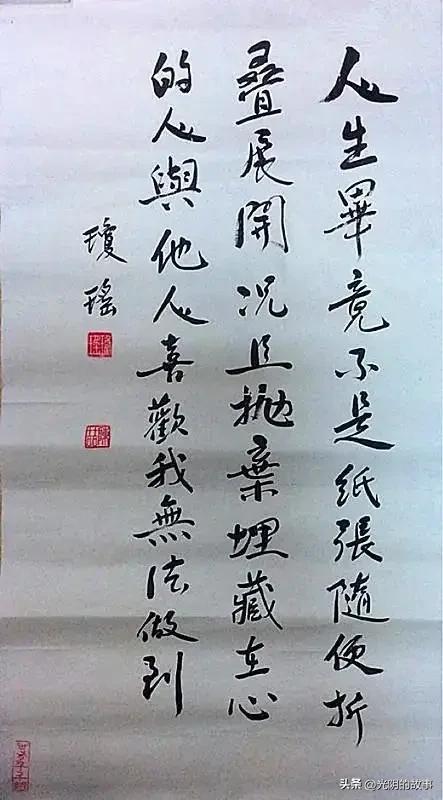 人生畢竟不是纸張隨便折
疊展開况且抛棄埋藏在心
的人與他人喜歡我無法做到
瓊瑤
头条 @光阴的故事